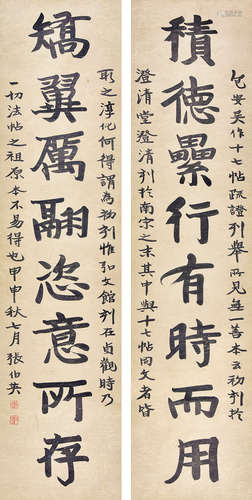 積德纍行有時而用
矯翼厲翮恣意所存
包安吳作十七帖疏證列舉所見無一善本云初刊於
澄清堂澄清刊於南宋之末其中與十七帖同文者皆
取之淳化何得謂為初刊惟弘文館刊在貞觀時乃
一切法帖之祖原本不易得也甲申秋七月張伯英